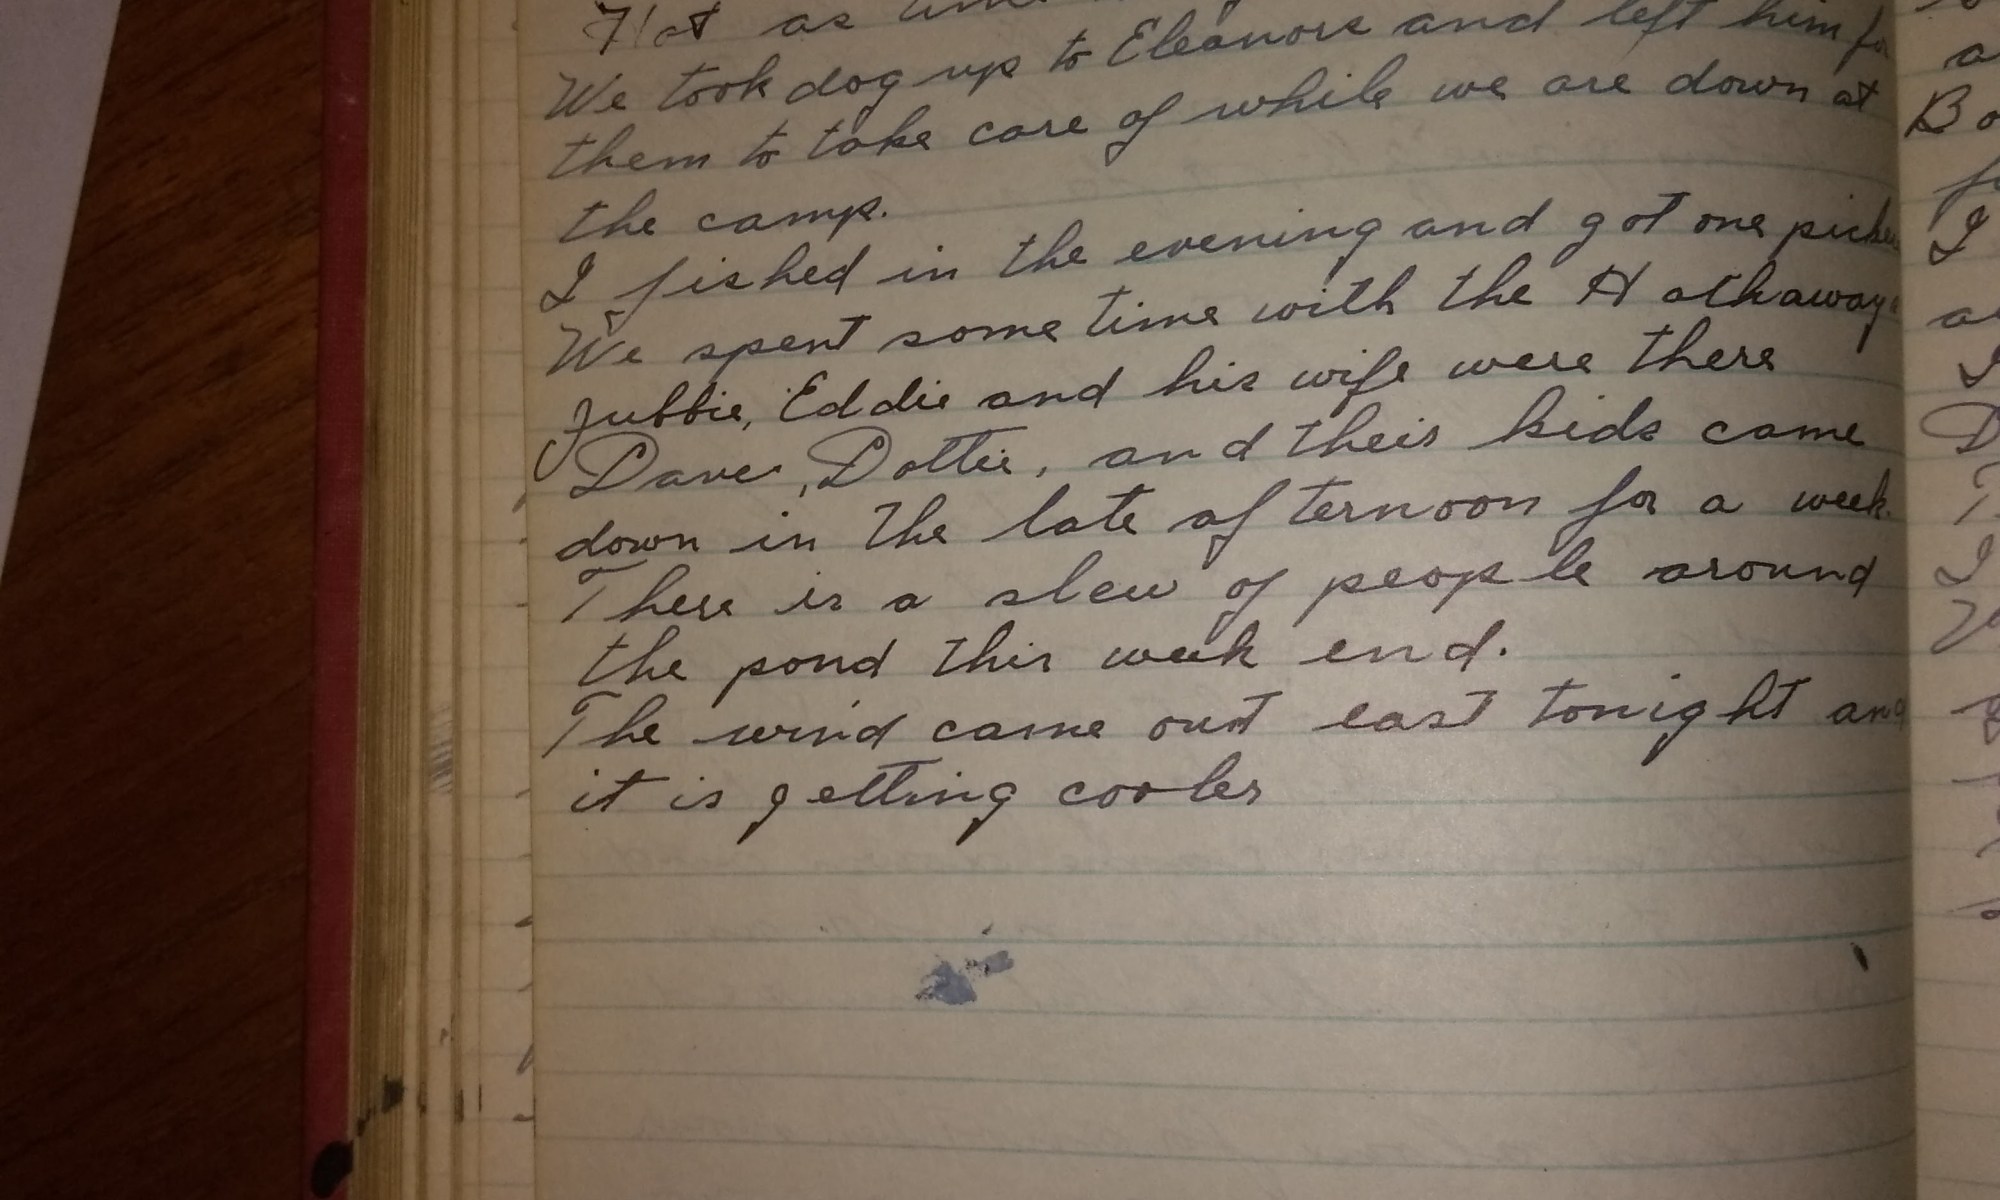 Hot as
We took dog up to Eleanors and left him for
them to take care of while we are down at
the camp.
I fished in the evening and got one
We spent some time with the Hathaways
Eddie and his wife were there
Dave, Dottie, and their kids came
down in the late afternoon for a week.
There is a slew of people around
the pond this week end.
The wind came out east tonight and
it is getting cooler